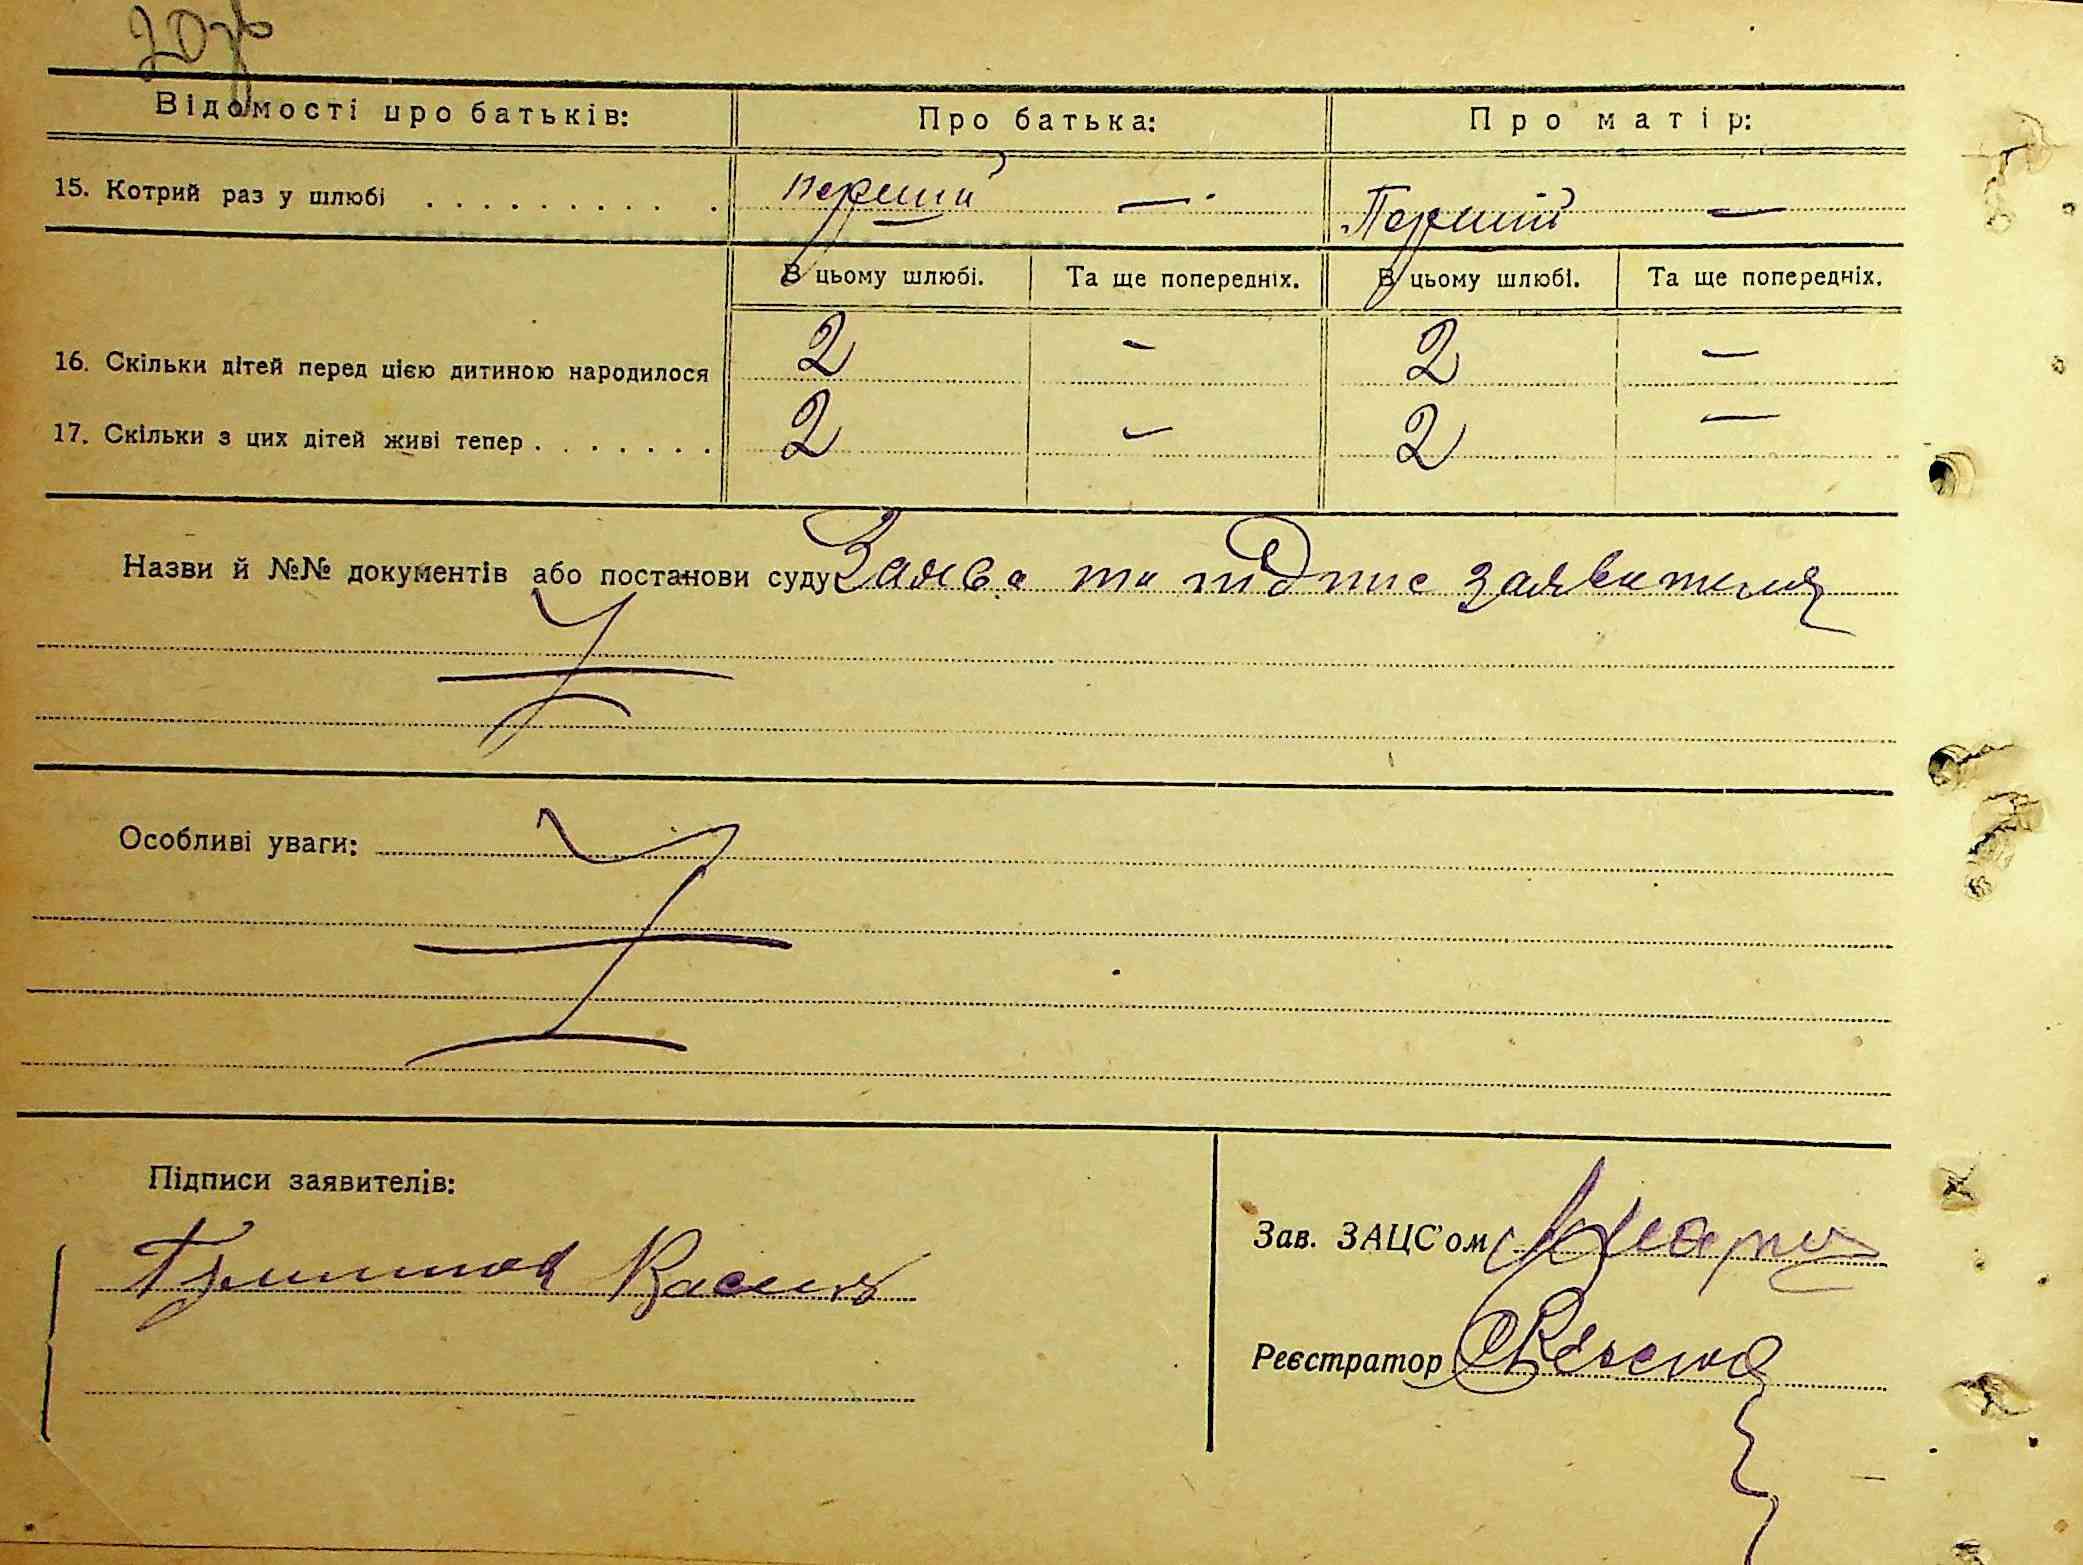 20зв
Відомості про батьків: Про батька: Про матір:
15. Котрий раз у шлюбі . . . . . . . . . . перший — Перший —
В цьому шлюбі. Та ще попередніх. В цьому шлюбі. Та ще попередніх.
16. Скільки дітей перед цією дитиною народилося 2 - 2 —
17. Скільки з цих дітей живі тепер . . . . . . . 2 - 2 —
Назви й №№ документів або постанови суду Заява та підпис заявителя
Особливі уваги:
Підписи заявителів:
Зав. ЗАЦС'ом
Реєстратор